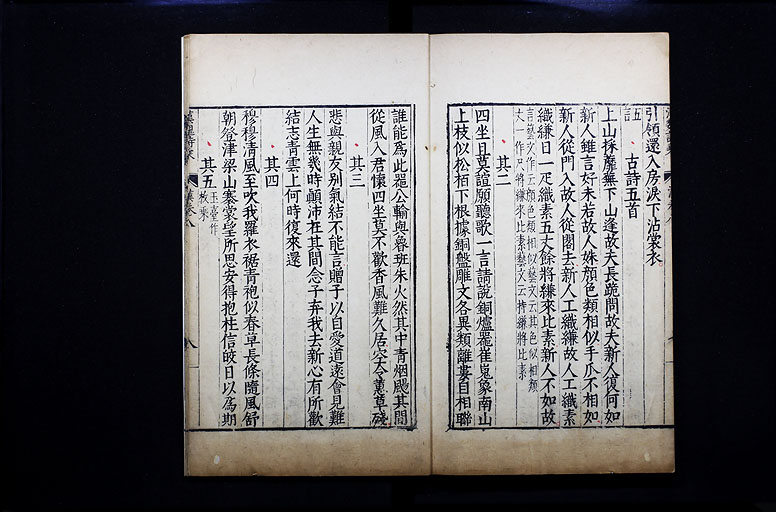 引領還入房淚下沾裳衣
五 古詩五首
上山採蘼蕪下山逢故夫長跪問故夫新人復何如
新人雖言好未若故人姝顏色類相似手爪不相如
新人從門入故人從閤去新人工織縑故人工織素
織縑日一疋織素五丈餘將縑來比素新人不如故
其二
四坐且莫諠願聽歌一言請說銅爐器崔嵬象南山
上枝似松栢下根據銅盤雕文各異類離婁自相聯
誰能爲此器公輸與魯班朱火然其中青烟颺其間
從風入君懷四坐莫不歡香風難久居空令蕙草殘
其三
悲與親友別氣結不能言贈子以自愛道遠會見難
人生無幾時顛沛在其間念子弃我去新心有所歡
結志青雲上何時復來還
其四
穆穆清風至吹我羅衣裾青袍似春草長條隨風舒
朝登津梁山褰裳望所思安得抱柱信皎日以爲期
其五 玉臺作
枚乘